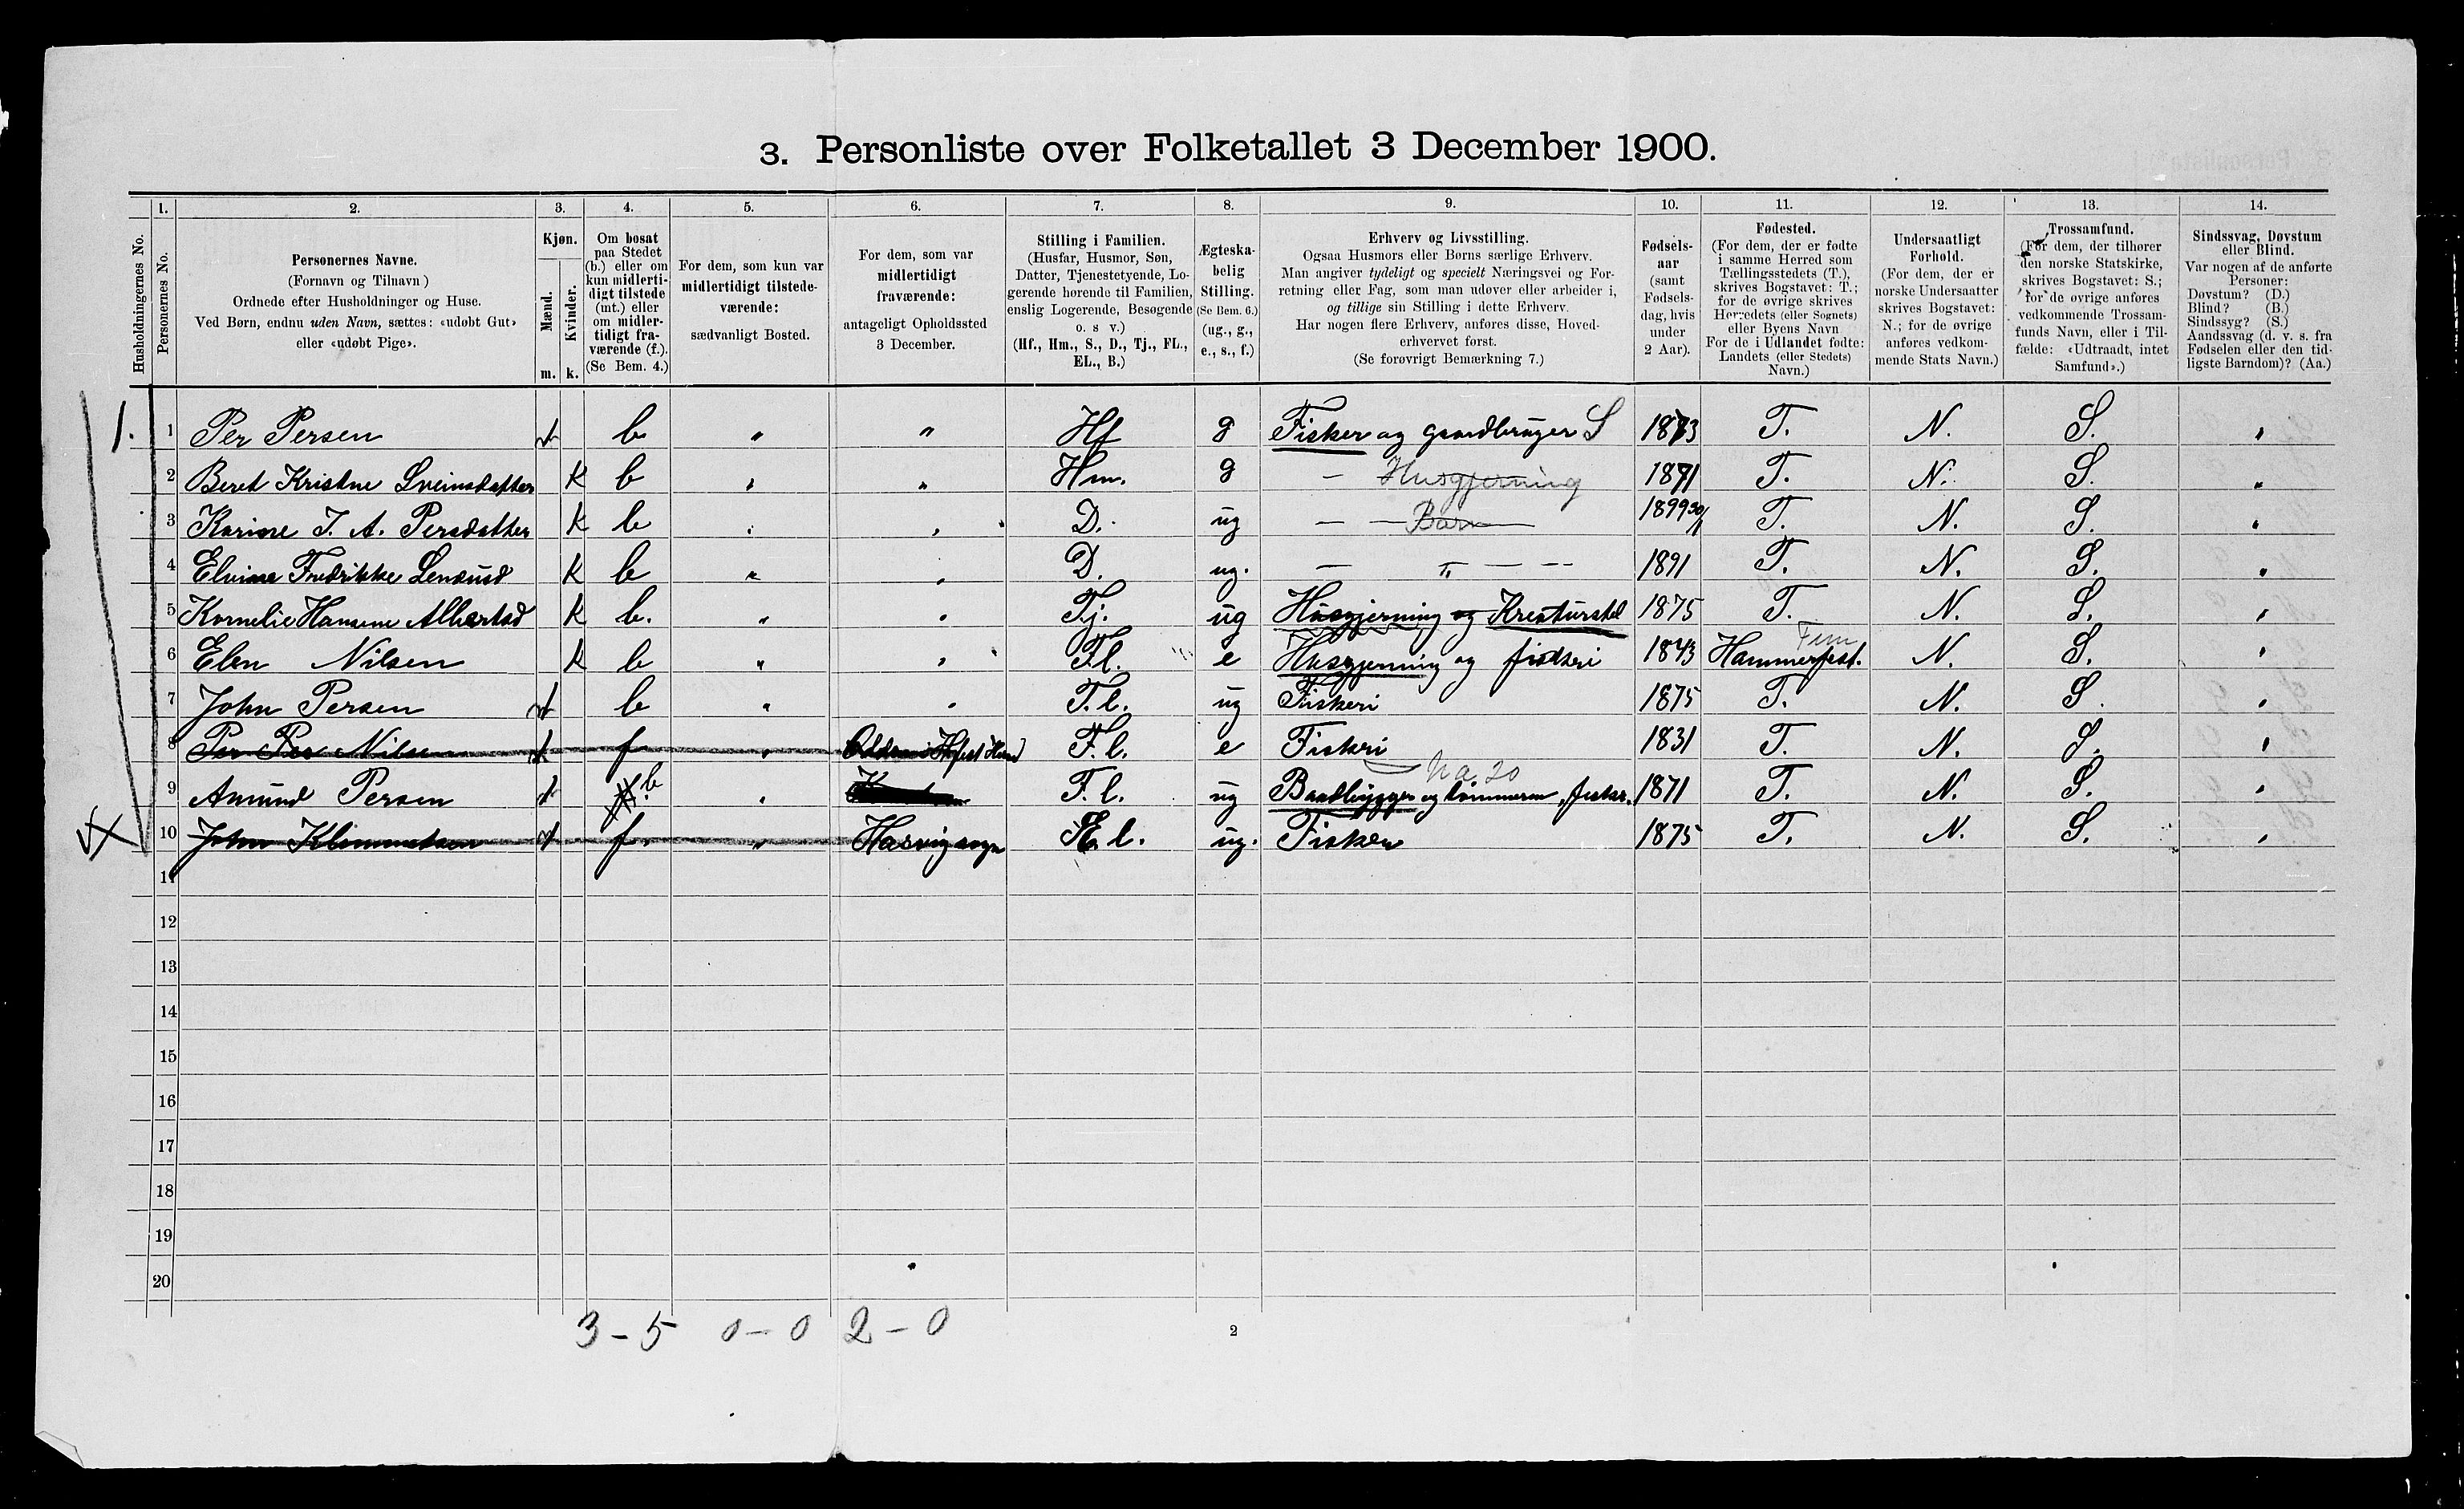 3. Personliste over Folketallet 3 December 1900.
1. 2. 3. 4. 5. 6. 7. 8. 9. 10. 11. 12. 13. 14.
Husholdningernes No.
Personernes No.
Personernes Navne.
(Fornavn og Tilnavn)
Ordnede efter Husholdninger og Huse.
Ved Børn, endnu uden Navn, sættes: «udøbt Gut»
eller «udøbt Pige».
Kjøn.
Mænd.
Kvinder.
m. k.
Om bosat
paa Stedet
(b.) eller om
kun midlerti-
digt tilstede
(mt.) eller
om midler-
tidigt fra-
værende (f.).
(Se Bem. 4.)
For dem, som kun var
midlertidigt tilstede-
værende:
sædvanligt Bosted.
For dem, som var
midlertidigt
fraværende:
antageligt Opholdssted
3 December.
Stilling i Familien.
(Husfar, Husmor, Søn,
Datter, Tjenestetyende, Lo-
gerende hørende til Familien,
enslig Logerende, Besøgende
o. s v.)
(Hf., Hm., S., D., Tj., FL.,
EL., B.)
Ægteska-
belig
Stilling.
(Se Bem. 6.)
(ug., g.,
e., s., f.)
Erhverv og Livsstilling.
Ogsaa Husmors eller Børns særlige Erhverv.
Man angiver tydeligt og specielt Næringsvei og For-
retning eller Fag, som man udøver eller arbeider i,
og tillige sin Stilling i dette Erhverv.
Har nogen flere Erhverv, anføres disse, Hoved-
erhvervet først.
(Se forøvrigt Bemærkning 7.)
Fødsels-
aar
(samt
Fødsels-
dag, hvis
under
2 Aar).
Fødested.
(For dem, der er fødte
i samme Herred som
Tællingsstedets (T.),
skrives Bogstavet: T.;
for de øvrige skrives
Herredets (eller Sognets)
eller Byens Navn
For de i Udlandet fødte:
Landets (eller Stedets)
Navn.)
Undersaatligt
Forhold.
(For dem, der er
norske Undersaatter
skrives Bogstavet:
N.; for de øvrige
anføres vedkom-
mende Stats Navn.)
Trossamfund.
(For dem, der tilhører
den norske Statskirke,
skrives Bogstavet: S.;
for de øvrige anføres
vedkommende Trossam-
funds Navn, eller i Til-
fælde: «Udtraadt, intet
Samfund».)
Sindssvag, Døvstum
eller Blind.
Var nogen af de anførte
Personer:
Døvstum? (D.)
Blind? (B.)
Sindssyg? (S.)
Aandssvag (d. v. s. fra
Fødselen eller den tid-
ligste Barndom)? (Aa.)
1. 1 Per Persen b " " Hf g Fisker og gaardbruger S 1873 T. N. S. "
2 Beret Kristne Sveinsdatter k b " " Hm. g — Husgjerning 1871 T. N. S. "
3 Karine J. A. Persdatter k b " " D. ug — Barn 1899 30/1 T. N. S. "
4 Elvine Fredrikke k b " " D. ug. — " — 1891 T. N. S. "
5 Kornelie Hansine Albertsd k b. " " Tj. ug Husgjerning og Kreaturstel 1875 T. N. S. "
6 Elen Nilsen k b " " F.l. e Husgjerning og fiskeri 1843 Hammerfest. N. S. "
7 John Persen b " " F.l. ug Fiskeri 1875 T. N. S. "
8 Per Nilsen f " F.l. e Fiskeri 1831 T. N. S. "
9 Amund Persen b " F.l. ug Baadbygger og tømmerm. fisker. 1871 T. N. S. "
10 John Klemmetsen f. " Hasvig sogn E.l. ug. Fisker 1875 T. N. S. "
11
12
13
14
15
16
17
18
19
20
3 - 5 0 - 0 2 - 0
2